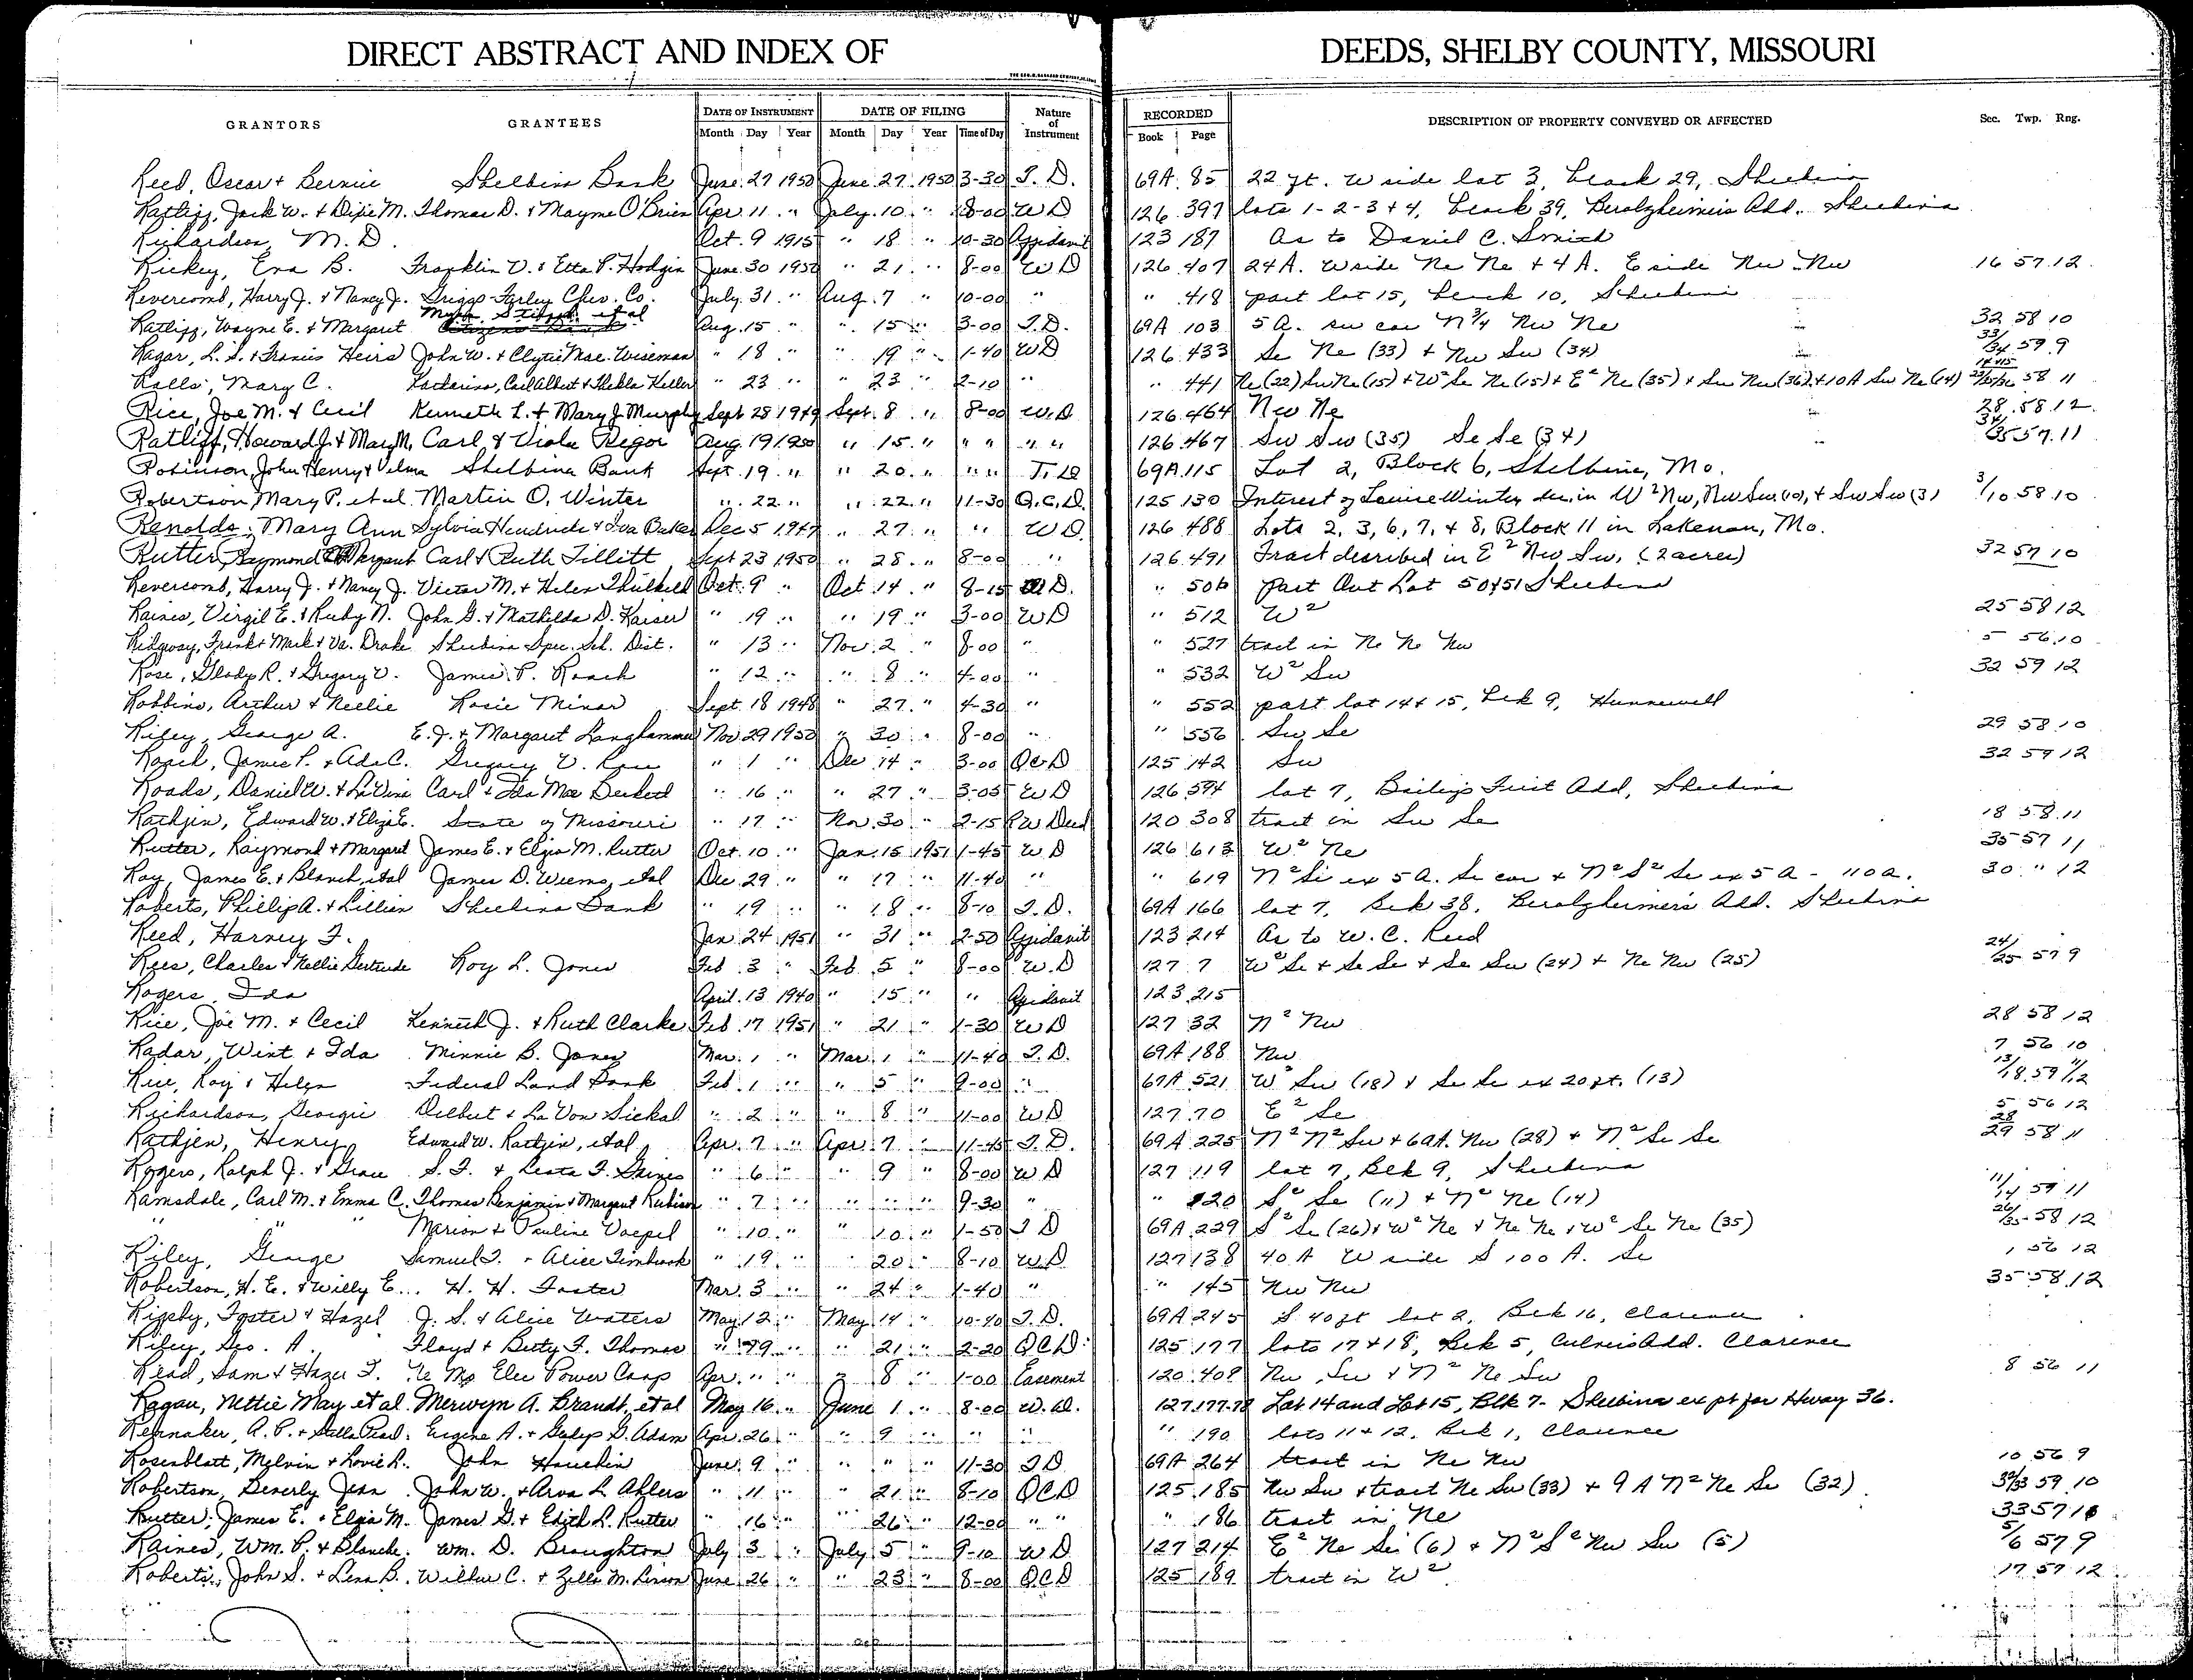 DIRECT ABSTRACT AND INDEX OF DEEDS, SHELBY COUNTY, MISSOURI
GRANTORS GRANTEES DATE OF INSTRUMENT Month Day Year DATE OF FILING Month Day Year Time of Day Nature of Instrument RECORDED Book Page DESCRIPTION OF PROPERTY CONVEYED OR AFFECTED Sec. Twp. Rng.
Reed, Oscar + Bernice Shelbina Bank June 27 1950 June 27 1950 3-30 T. D. 69A 85 22 ft. W side lot 3, block 29, Shelbina
Ratliff, Jack W. + Dixie M. Thomas D. + Mayme O'Brien Apr. 11 " July 10 " 8-00 WD 126 397 lots 1-2-3+4, block 39, Berolzheimer's Add. Shelbina
Richardson, M. D. Oct. 9 1915 " 18 " 10-30 Affidavit 123 187 As to Daniel C. Smith
Rickey, Eva B. Franklin V. + Etta P. Hodgin June 30 1950 " 21 " 8-00 WD 126 407 24A. W side Ne Ne + 4A. E side Nw Nw 16 57 12
Revercomb, Harry J. + Nancy J. Griggs-Farley Chev. Co. July 31 " Aug. 7 " 10-00 " " 418 part lot 15, block 10, Shelbina
Ratliff, Wayne E. + Margaret et al Aug. 15 " " 15 " 3-00 T.D. 69A 103 5A. sw cor N 3/4 Nw Ne 32 58 10
Ragar, L. S. + Francis Heirs John W. + Clytie Mae Wiseman " 18 " " 19 " 1-40 WD 126 433 Se Ne (33) + Nw Sw (34) 33/34 59 9
Ralls, Mary C. Katherine, Carl Albert + Thekla Keller " 23 " " 23 " 2-10 " " 441 Ne (22) Sw Ne (15) + W² Se Ne (15) + E² Ne (35) + Sw Nw (36) + 10A Sw Ne (14) 58 11
Rice, Joe M. + Cecil Kenneth L. + Mary J. Murphy Sept 28 1949 Sept. 8 " 8-00 W.D 126 464 Nw Ne 28 58 12
Ratliff, Howard J. + Mary M. Carl & Viola Regor Aug 19 1950 " 15 " " " " " 126 467 Sw Sw (35) Se Se (34) 34/35 57 11
Robinson, John Henry + Velma Shelbina Bank Sept. 19 " " 20 " " " T. D 69A 115 Lot 2, Block 6, Shelbina, Mo.
Robertson, Mary P. et al Martin O. Winter " 22 " " 22 " 11-30 Q.C.D. 125 130 Interest of Louise Winter in W² Nw, Nw Sw (10), + Sw Sw (3) 3/10 58 10
Renolds, Mary Ann Sylvia Hendricks + Iva Baker Dec 5 1947 " 27 " " WD. 126 488 Lots 2, 3, 6, 7, + 8, Block 11 in Lakenan, Mo.
Rutter, Raymond Margaret Carl + Ruth Tillitt Sept 23 1950 " 28 " 8-00 " 126 491 Tract described in E² Nw Sw, (2 acres) 32 57 10
Revercomb, Harry J. + Nancy J. Victor M. + Helen Thrilkeld Oct. 9 " Oct 14 " 8-15 W.D. " 506 part Out Lot 50+51 Shelbina
Raines, Virgil E. + Ruby N. John G. + Mathilda D. Kaiser " 19 " " 19 " 3-00 WD " 512 W² 25 58 12
Ridgway, Frank + Mark + Va. Drake Shelbina Spec. Sch. Dist. " 13 " Nov. 2 " 8-00 " " 527 tract in Ne Ne Nw 5 56 10
Rose, Gladys R. + Gregory V. James P. Roach " 12 " " 8 " 4-00 " " 532 W² Sw 32 59 12
Robbins, Arthur + Nellie Rosie Minor Sept. 18 1948 " 27 " 4-30 " " 552 part lot 14 + 15, Bek 9, Hunnewell
Riley, George A. E. J. + Margaret Langhammer Nov 29 1950 " 30 " 8-00 " " 556 Sw Se 29 58 10
Roach, James P. + Ada C. Gregory V. Rose " 1 " Dec 14 " 3-00 QCD 125 142 Sw 32 59 12
Roads, Daniel W. + LaVine Carl + Ida Mae Becket " 16 " " 27 " 3-05 WD 126 594 lot 7, Bailey's First Add, Shelbina
Rathjen, Edward W. + Eliza E. State of Missouri " 17 " Nov. 30 " 2-15 RW Deed 120 308 tract in Sw Se 18 58 11
Rutter, Raymond + Margaret James E. + Elgia M. Rutter Oct. 10 " Jan. 15 1951 1-45 WD 126 613 W² Ne 35 57 11
Ray, James E. + Blanch, et al James D. Weems, et al Dec 29 " " 17 " 11-40 " " 619 N² Se ex 5A. Se cor + N² S² Se ex 5A - 110 a. 30 " 12
Roberts, Phillip A. + Lillian Shelbina Bank " 19 " " 18 " 8-10 T.D. 69A 166 lot 7, Bek 38, Berolzheimer's Add. Shelbina
Reed, Harney F. Jan 24 1951 " 31 " 2-50 Affidavit 123 214 As to W. C. Reed
Rees, Charles + Nellie Gertrude Roy L. Jones Feb. 3 " Feb. 5 " 8-00 W.D 127 7 W² Se + Se Se + Se Sw (24) + Ne Nw (25) 24/25 57 9
Rogers, Ida April 13 1940 " 15 " " Affidavit 123 215
Rice, Joe M. + Cecil Kenneth J. + Ruth Clarke Feb. 17 1951 " 21 " 1-30 WD 127 32 N² Nw 28 58 12
Radar, Wint + Ida Minnie B. Jones Mar. 1 " Mar. 1 " 11-40 T.D. 69A 188 Nw 7 56 10
Rice, Roy + Helen Federal Land Bank Feb. 1 " " 5 " 9-00 " 67A 521 W² Sw (18) + Se Se ex 20 ft. (13) 13/18 59 11/12
Richardson, Georgie Delbert + LaVon Sickal " 2 " " 8 " 11-00 WD 127 70 E² Se 5 56 12
Rathjen, Henry Edward W. Rathjen, et al Apr. 7 " Apr. 7 " 11-45 T.D. 69A 225 N² N² Sw + 6 a A. Nw (28) + N² Se Se 28/29 58 11
Rogers, Ralph J. + Grace S. F. + Lesta F. Gaines " 6 " " 9 " 8-00 WD 127 119 lot 7, Bek 9, Shelbina
Ramsdale, Carl M. + Emma C. Thomas Benjamin + Margaret Rubison " 7 " " " " 9-30 " " 120 S² Se (11) + N² Ne (14) 11/14 59 11
" " " Marion + Pauline Voepel " 10 " " 10 " 1-50 T D 69A 229 S² Se (26) + W² Ne + Ne Ne + W² Se Ne (35) 26/35 58 12
Riley, George Samuel T. + Alice Timbrook " 19 " " 20 " 8-10 W.D 127 138 40 A W side S 100 A. Se 1 56 12
Robertson, H. E. + Willy E. H. H. Foster Mar. 3 " " 24 " 1-40 " " 145 Nw Nw 35 58 12
Rigsby, Foster + Hazel J. S. + Alice Waters May 12 " May 14 " 10-40 T.D. 69A 245 S 40 ft lot 2, Bek 16, Clarence
Riley, Geo. A. Floyd + Betty F. Thomas " 19 " " 21 " 2-20 QCD 125 177 lots 17 + 18, Bek 5, Culver's Add. Clarence
Read, Sam + Hazel F. Ne Mo Elec Power Coop Apr. " " " 8 " 1-00 Easement 120 408 Nw Sw + N² Ne Sw 8 56 11
Ragan, Nettie May et al Merwyn A. Brandt, et al May 16 " June 1 " 8-00 W.D. 127 177-78 Lot 14 and Lot 15, Blk 7- Shelbina ex pt for Hway 36.
Rennaker, A. P. + Stella Pearl Eugene A. + Gladys G. Adam Apr. 26 " " 9 " " " " 190 lots 11 + 12, Bek 1, Clarence
Rosenblatt, Melvin + Lovie R. John Hauchin June 9 " " " " 11-30 T D 69A 264 tract in Ne Nw 10 56 9
Robertson, Beverly Jean John W. + Arva L Ahlers " 11 " " 21 " 8-10 QCD 125 185 Nw Sw + tract Ne Sw (33) + 9 A N² Ne Se (32) 32/33 59 10
Rutter, James E. + Elgia M. James G. + Edith L. Rutter " 16 " " 26 " 12-00 " " " 186 tract in Ne 33 57 10
Raines, Wm. P. + Blanche Wm. D. Broughton July 3 " July 5 " 9-10 WD 127 214 E² Ne Se (6) + N² S² Nw Sw (5) 5/6 57 9
Roberts, John S. + Lena B. Wilbur C. + Zella M. Linson June 26 " " 23 " 8-00 QCD 125 189 tract in W² 17 57 12